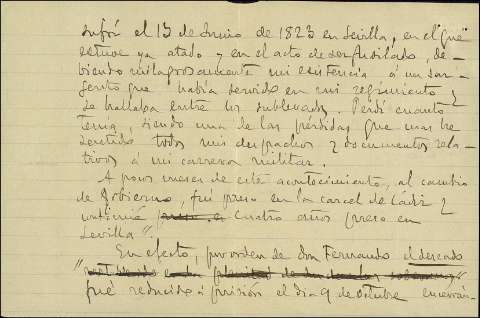 sufrí el 13 de Junio de 1823 en Sevilla, en el "que
estuve ya atado y en el acto de ser fusilado, de-
biendo milagrosamente mi existencia á un sar-
gento que había servido en mi regimiento y
se hallaba entre los sublevados. Perdí cuanto
tenía, siendo una de las pérdidas que mas he
sentido todos mis despachos y documentos rela-
tivos á mi carrera militar.
A pocos meses de este acontecimiento, al cambio
de gobierno, fuí preso en la carcel de Cádiz y
continué cuatro años preso en
Sevilla".
En efecto, por orden de don Fernando el deseado
fué reducido á prisión el dia 9 de octubre encerrán-